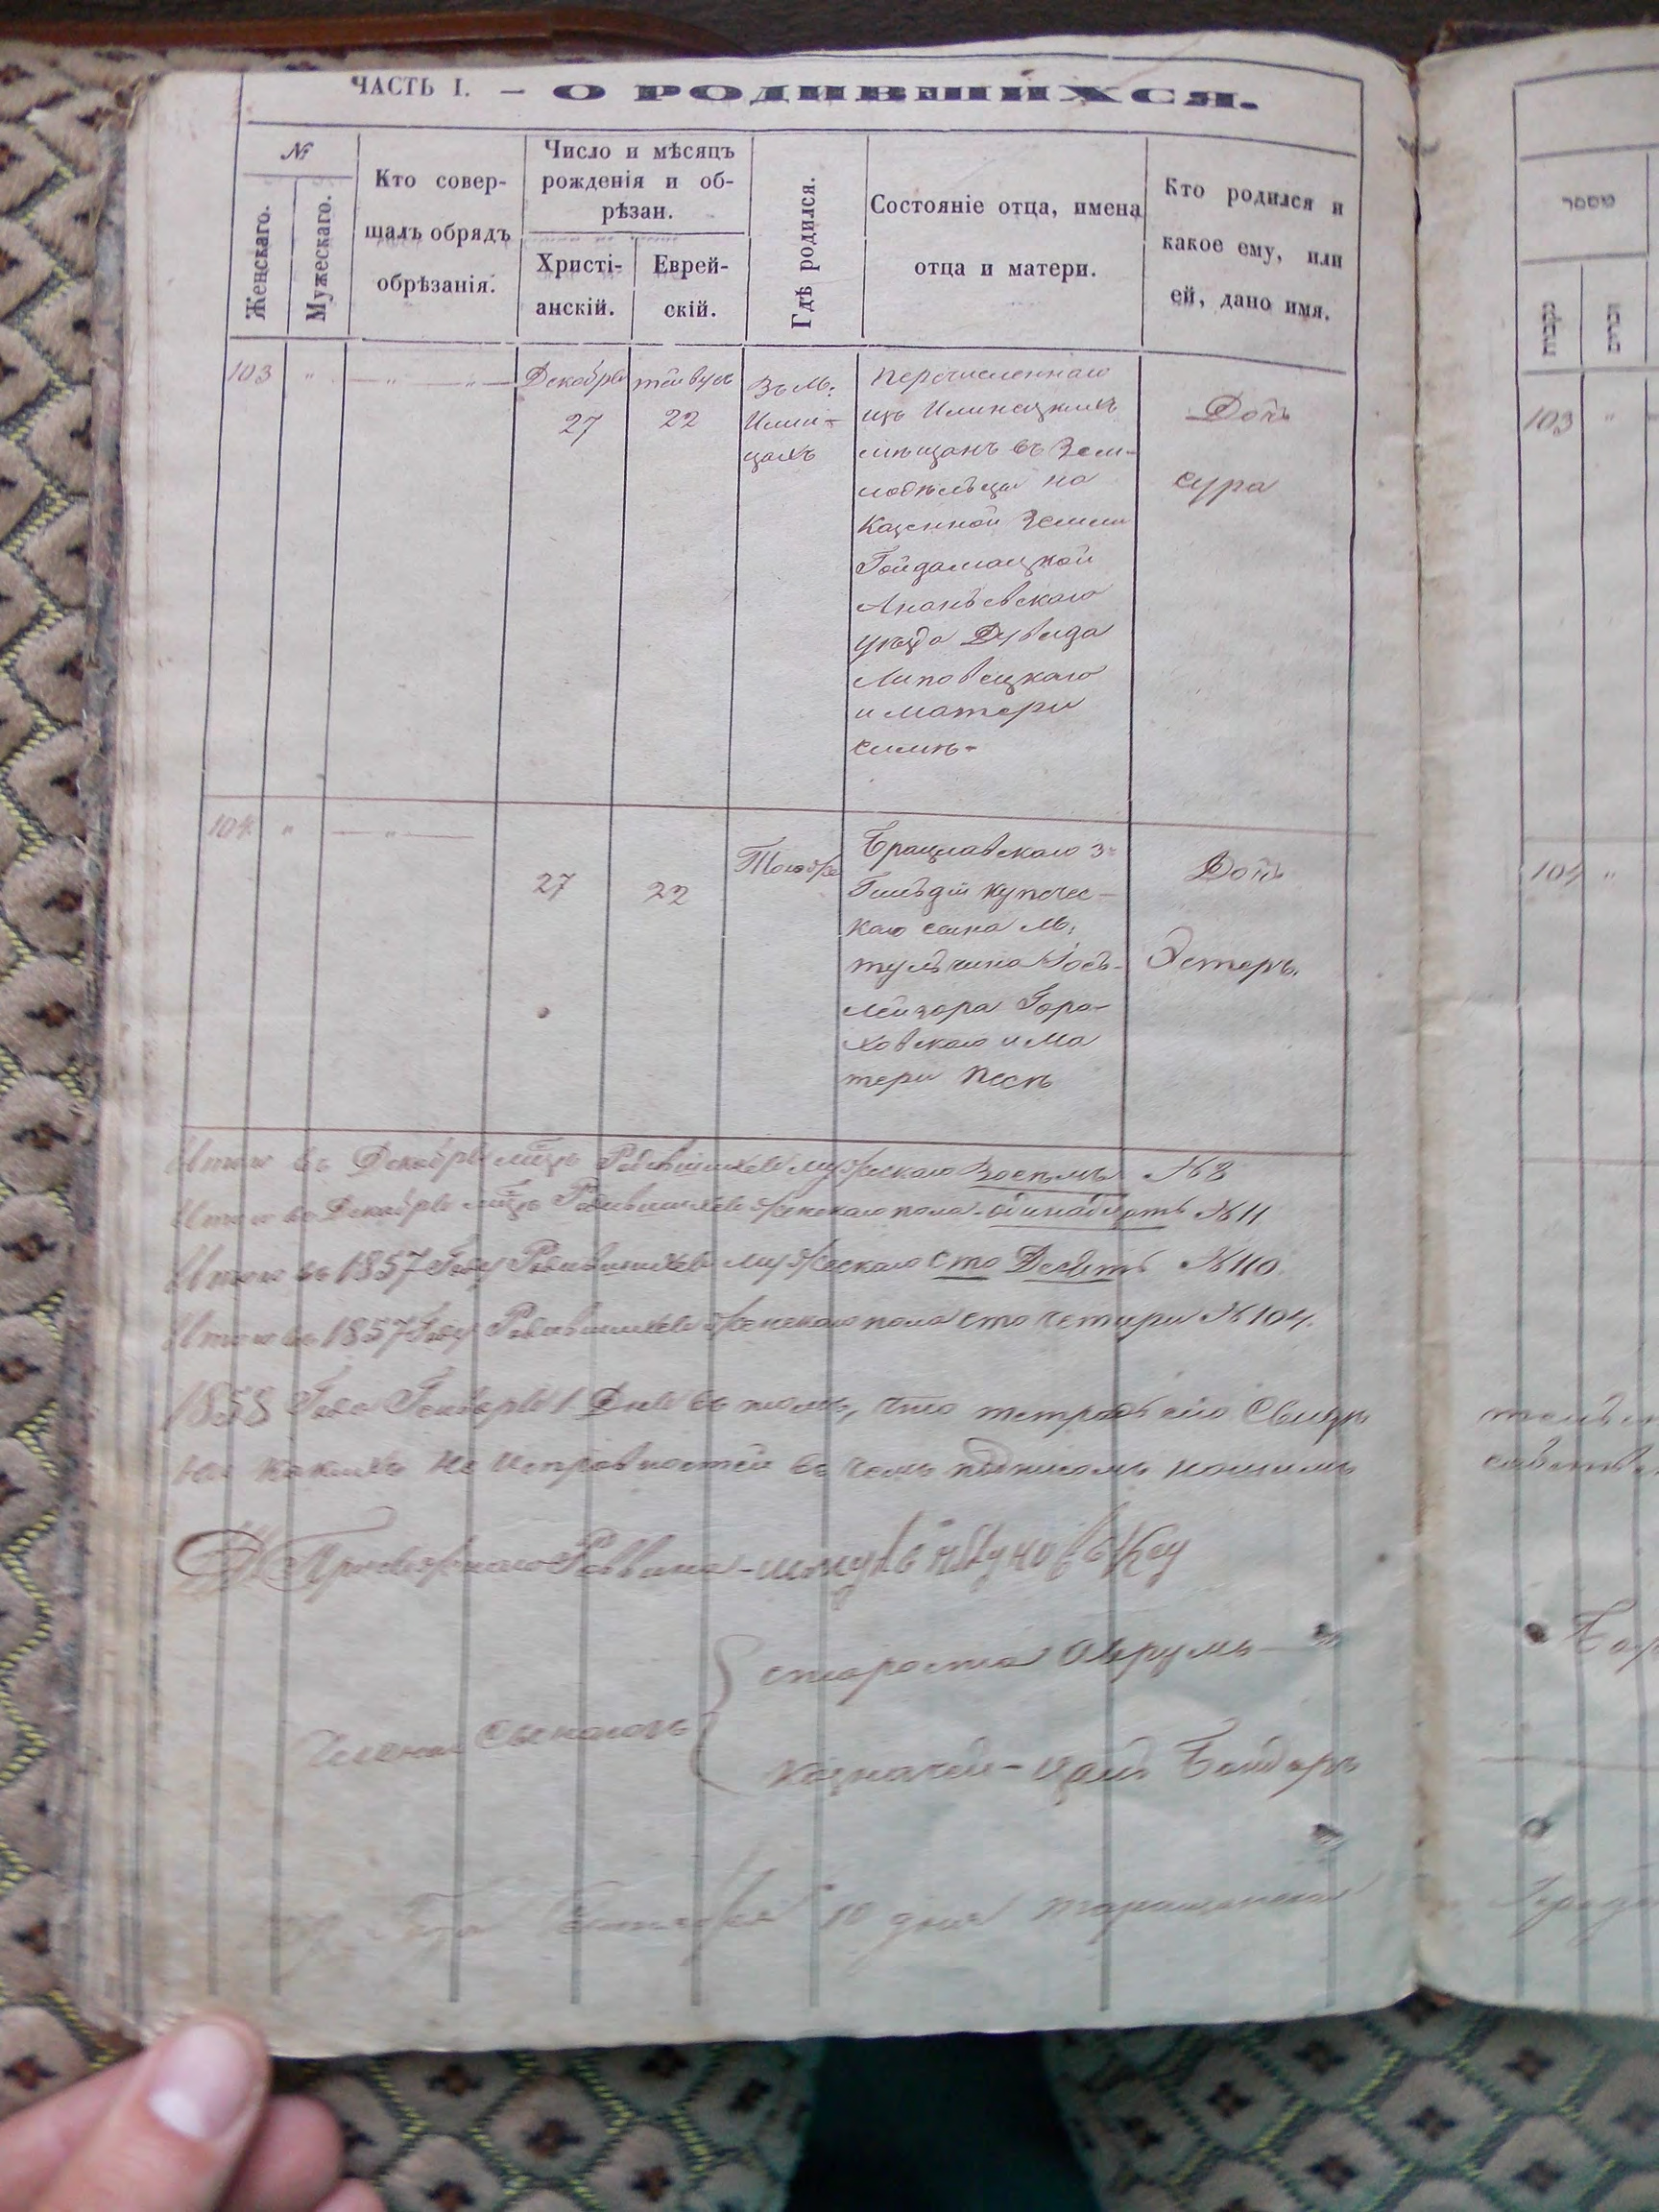 ЧАСТЬ I. — О РОДИВШИХСЯ.
№
Женскаго.
Мужескаго.
Кто совер-
шалъ обрядъ
обрѣзанія.
Число и мѣсяцъ
рожденія и об-
рѣзан.
Христі-
анскій.
Еврей-
скій.
Гдѣ родился.
Состояніе отца, имена
отца и матери.
Кто родился и
какое ему, или
ей, дано имя.
103 " — " — " —
Декабря
27
22
Въ М:
Илин-
цахъ
перечисленнаго
изъ Илинецкихъ
мѣщанъ въ Зем-
лодѣльцы на
Казенной Земли
Гойдамацкой
Ананьевскаго
уѣзда Дувида
Липовецкаго
и матери
симѣ-
Дочь
сура
104 " — " —
27
22
Тоже
Брацлавскаго 3й
Гильдіи купечес-
каго сына М:
тульчина Іось-
Лейзора Горо-
ховскаго и Ма
тери песѣ
Дочь
Эстеръ.
Итого въ Декабрѣ мѣцѣ Родившихся мужескаго Восемь №8
Итого въ Декабрѣ мѣцѣ Родившихся женскаго пола одинадцать №11
Итого въ 1857 Году Родившихся мужескаго сто Десять №110.
Итого въ 1857 Году Родившихся женскаго пола сто четири №104.
1858 Года Генваря 1 Дня въ томъ, что тетрадь сію
какихъ не исправностей въ чемъ подписомъ нашимъ
Раввина
Члены
староста Аврумъ
казначей- Бондарь
Года 10 дня Таращанской
נקבות
זכרים
103 "
104 "